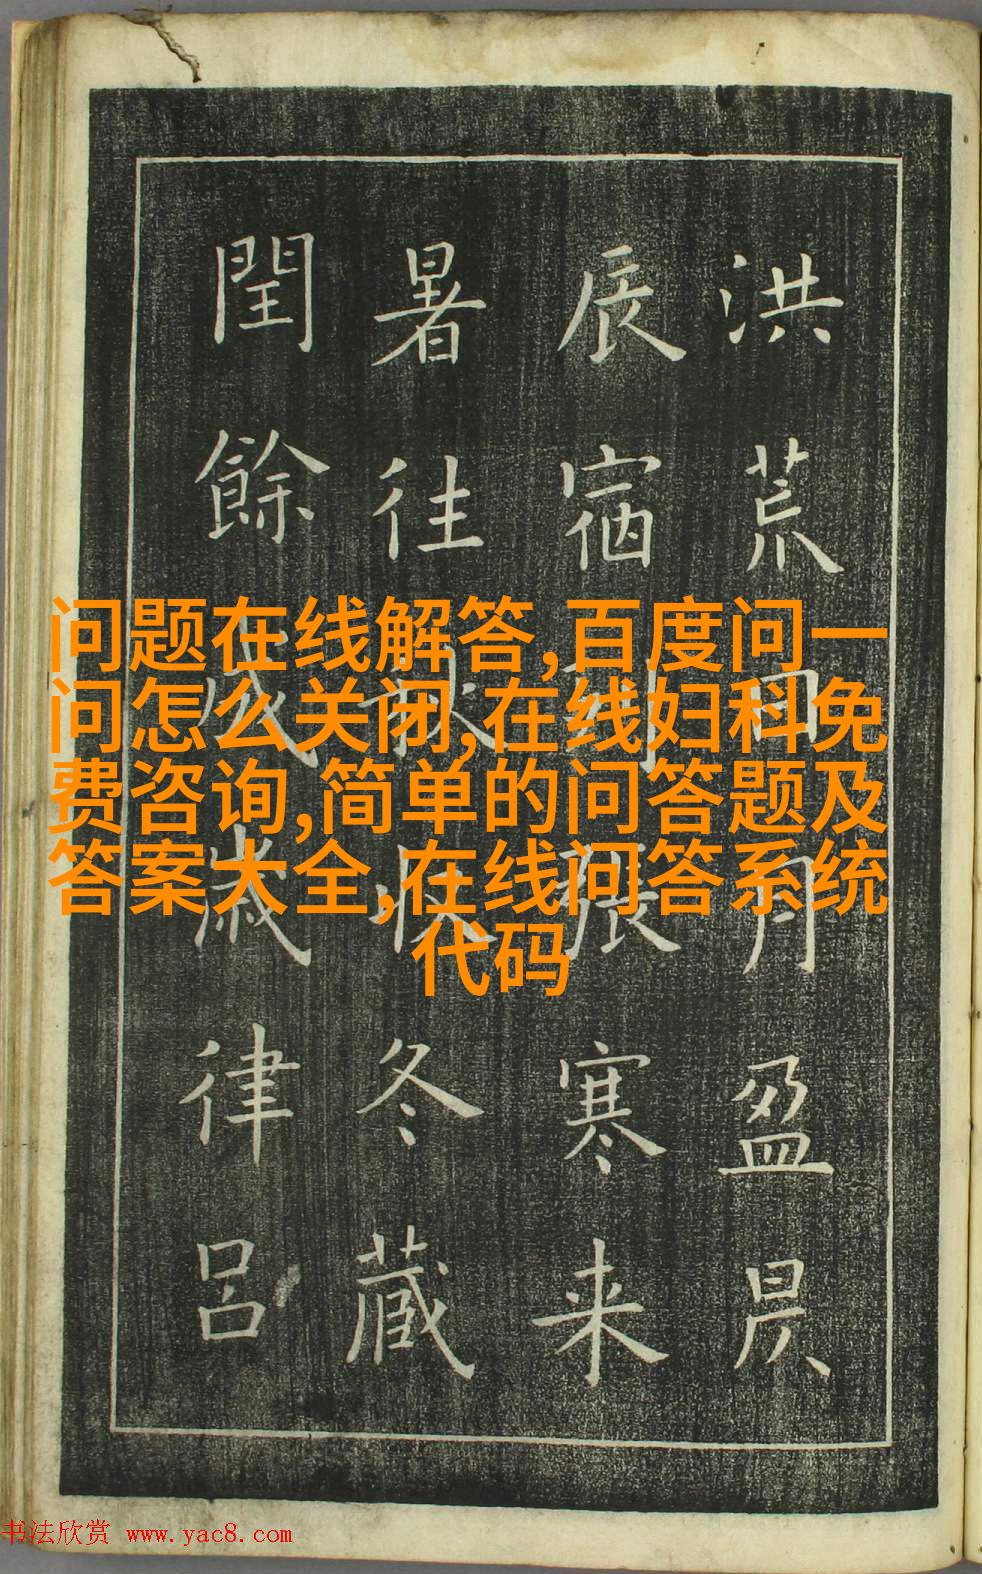 洪荒日月盈昃
辰宿列張寒来
暑往秋收冬藏
閏餘成歲律呂
问题在线解答,百度问一
问怎么关闭,在线妇科免
费咨询,简单的问答题及
答案大全,在线问答系统
代码
书法欣赏 www.yac8.com